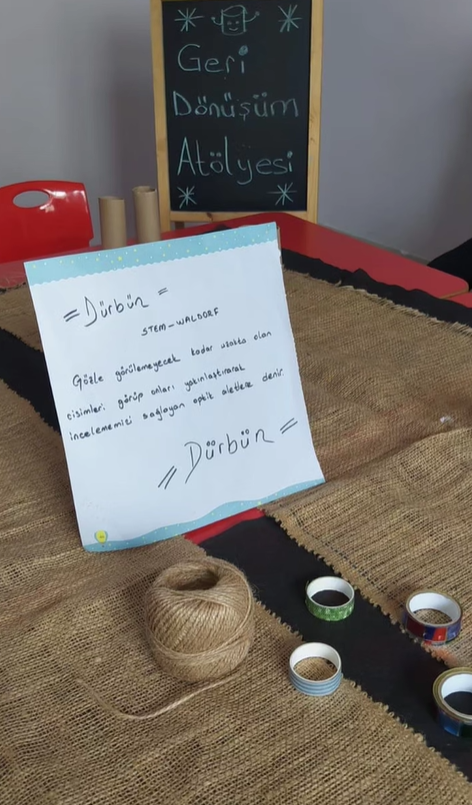 Geri
Dönüşüm
Atölyesi
= Dürbün =
STEM-WALDORF
Gözle görülemeyecek kadar uzakta olan
cisimleri görüp onları yakınlaştırarak
incelememizi sağlayan optik aletlere denir.
= Dürbün =